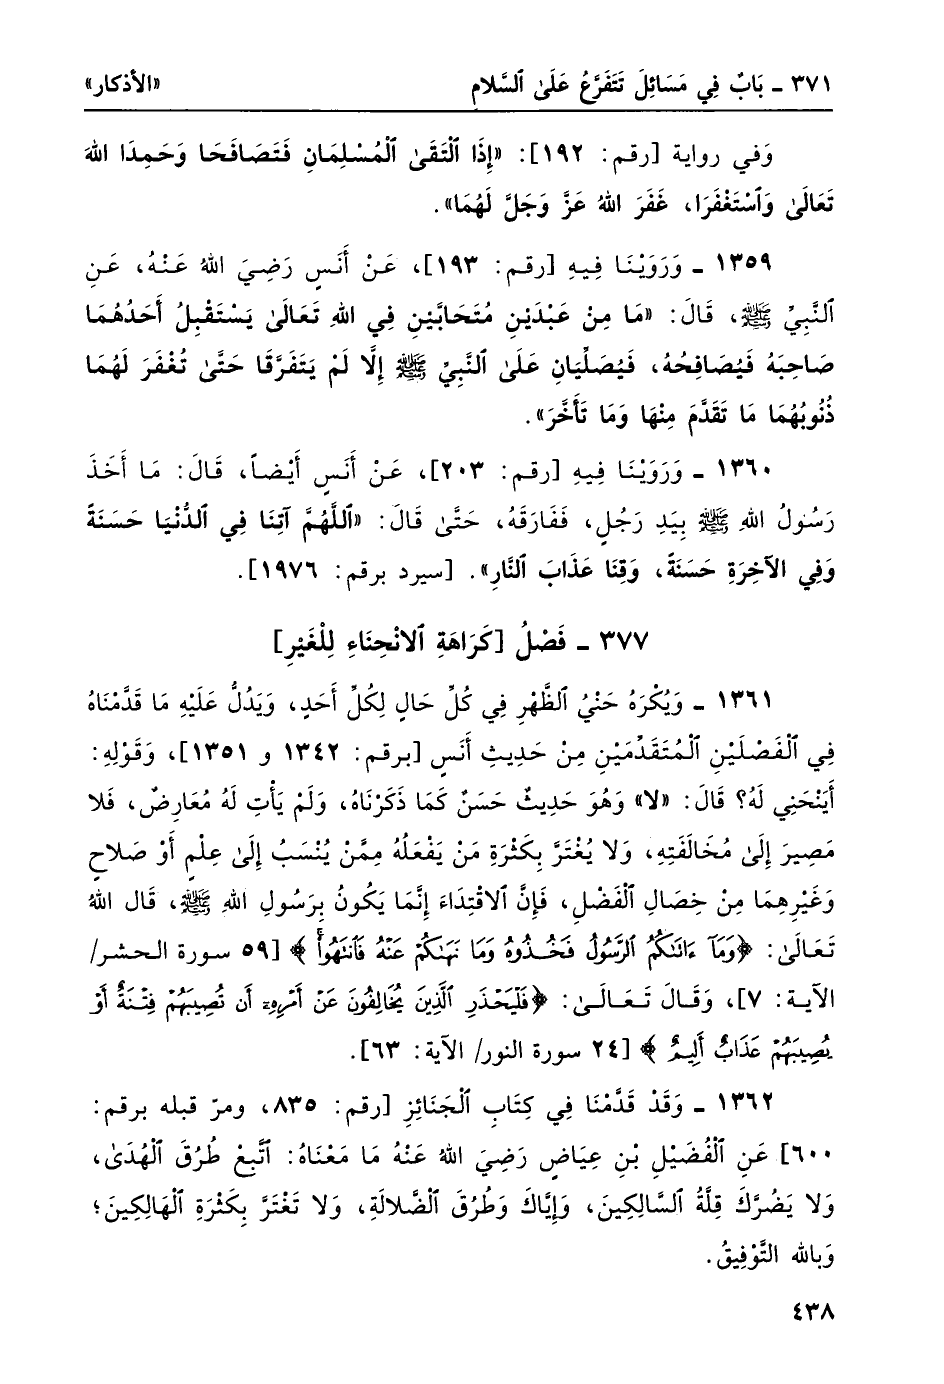 ٣٧١ ـ بَابٌ فِي مَسَائِلَ تَتَفَرَّعُ عَلَىٰ ٱلسَّلام «الأذكار»
وَفي رواية [رقم: ١٩٢]: «إِذَا ٱلْتَقَىٰ ٱلْمُسْلِمَانِ فَتَصَافَحَا وَحَمِدَا اللهَ
تَعَالَىٰ وَٱسْتَغْفَرَا، غَفَرَ اللهُ عَزَّ وَجَلَّ لَهُمَا».
١٣٥٩ ـ وَرَوَيْنَا فِيهِ [رقم: ١٩٣]، عَنْ أَنَسٍ رَضِيَ اللهُ عَنْهُ، عَنِ
ٱلنَّبِيِّ ﷺ، قَالَ: «مَا مِنْ عَبْدَيْنِ مُتَحَابَّيْنِ فِي اللهِ تَعَالَىٰ يَسْتَقْبِلُ أَحَدُهُمَا
صَاحِبَهُ فَيُصَافِحُهُ، فَيُصَلِّيَانِ عَلَىٰ ٱلنَّبِيِّ ﷺ إِلَّا لَمْ يَتَفَرَّقَا حَتَّىٰ تُغْفَرَ لَهُمَا
ذُنُوبُهُمَا مَا تَقَدَّمَ مِنْهَا وَمَا تَأَخَّرَ».
١٣٦٠ ـ وَرَوَيْنَا فِيهِ [رقم: ٢٠٣]، عَنْ أَنَسٍ أَيْضاً، قَالَ: مَا أَخَذَ
رَسُولُ اللهِ ﷺ بِيَدِ رَجُلٍ، فَفَارَقَهُ، حَتَّىٰ قَالَ: «ٱللَّهُمَّ آتِنَا فِي ٱلدُّنْيَا حَسَنَةً
وَفِي الآخِرَةِ حَسَنَةً، وَقِنَا عَذَابَ ٱلنَّارِ». [سيرد برقم: ١٩٧٦].
٣٧٧ ـ فَصْلُ [كَرَاهَةِ ٱلانْحِنَاءِ لِلْغَيْرِ]
١٣٦١ ـ وَيُكْرَهُ حَنْيُ ٱلظَّهْرِ فِي كُلِّ حَالٍ لِكُلِّ أَحَدٍ، وَيَدُلُّ عَلَيْهِ مَا قَدَّمْنَاهُ
فِي ٱلْفَصْلَيْنِ ٱلْمُتَقَدِّمَيْنِ مِنْ حَدِيثِ أَنَسٍ [برقم: ١٣٤٢ و ١٣٥١]، وَقَوْلِهِ:
أَيَنْحَنِي لَهُ؟ قَالَ: «لا» وَهُوَ حَدِيثٌ حَسَنٌ كَمَا ذَكَرْنَاهُ، وَلَمْ يَأْتِ لَهُ مُعَارِضٌ، فَلا
مَصِيرَ إِلَىٰ مُخَالَفَتِهِ، وَلا يُغْتَرَّ بِكَثْرَةِ مَنْ يَفْعَلُهُ مِمَّنْ يُنْسَبُ إِلَىٰ عِلْمٍ أَوْ صَلاحٍ
وَغَيْرِهِمَا مِنْ خِصَالِ ٱلْفَضْلِ، فَإِنَّ ٱلاقْتِدَاءَ إِنَّمَا يَكُونُ بِرَسُولِ اللهِ ﷺ، قَال اللهُ
تَعَالَىٰ: ﴿وَمَآ ءَاتَىٰكُمُ ٱلرَّسُولُ فَخُذُوهُ وَمَا نَهَىٰكُمْ عَنْهُ فَٱنتَهُوا۟﴾ [٥٩ سورة الحشر/
الآية: ٧]، وَقَالَ تَعَالَىٰ: ﴿فَلْيَحْذَرِ ٱلَّذِينَ يُخَالِفُونَ عَنْ أَمْرِهِۦٓ أَن تُصِيبَهُمْ فِتْنَةٌ أَوْ
يُصِيبَهُمْ عَذَابٌ أَلِيمٌ﴾ [٢٤ سورة النور/ الآية: ٦٣].
١٣٦٢ ـ وَقَدْ قَدَّمْنَا فِي كِتَابِ ٱلْجَنَائِزِ [رقم: ٨٣٥، ومرّ قبله برقم:
٦٠٠] عَنِ ٱلْفُضَيْلِ بْنِ عِيَاضٍ رَضِيَ اللهُ عَنْهُ مَا مَعْنَاهُ: ٱتَّبِعْ طُرُقَ ٱلْهُدَىٰ،
وَلا يَضُرَّكَ قِلَّةُ ٱلسَّالِكِينَ، وَإِيَّاكَ وَطُرُقَ ٱلضَّلالَةِ، وَلا تَغْتَرَّ بِكَثْرَةِ ٱلْهَالِكِينَ؛
وَبالله التَّوْفِيقُ.
٤٣٨